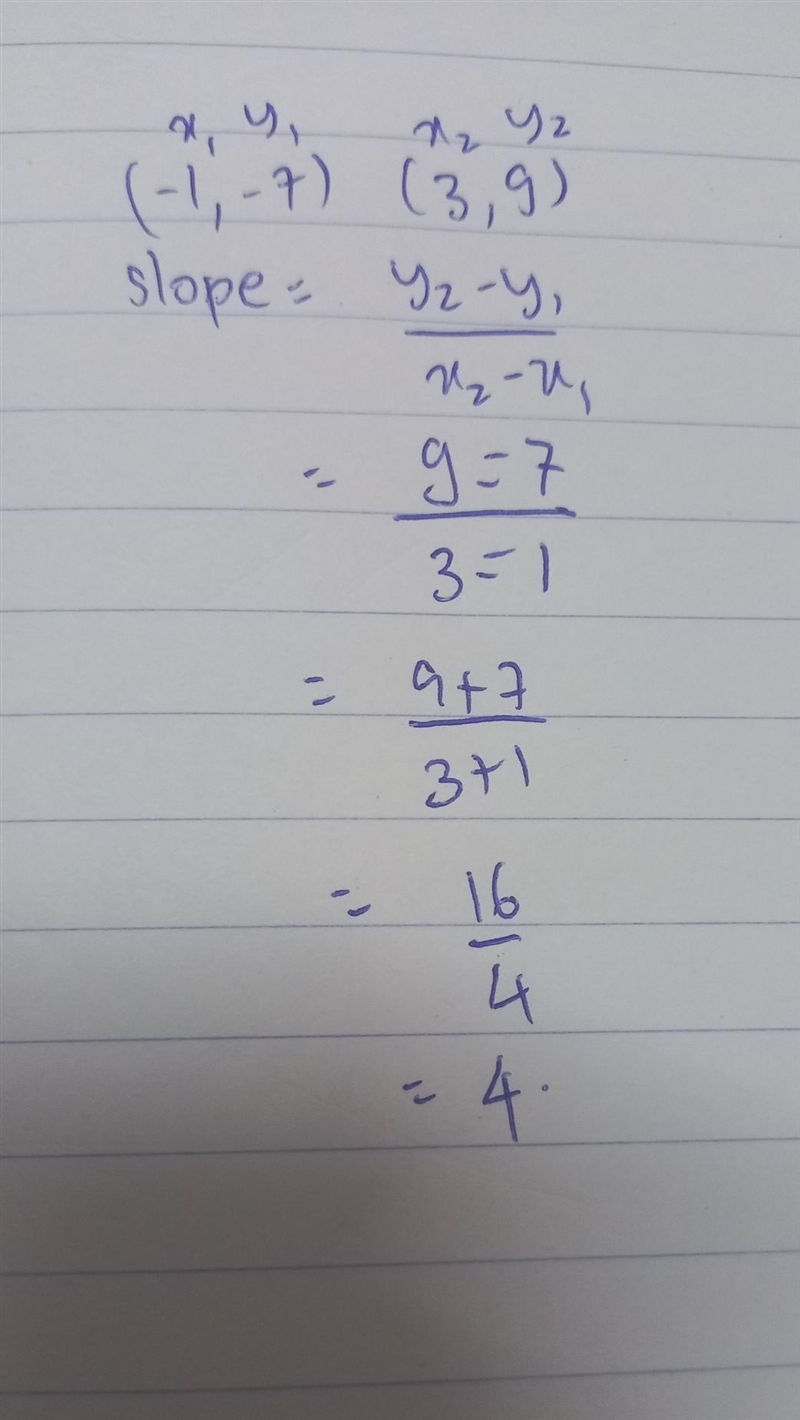 x₁ y₁ x₂ y₂
(-1, -7) (3, 9)
slope = y₂ - y₁
x₂ - x₁
= 9 = 7
3 = 1
= 9 + 7
3 + 1
= 16
4
= 4.